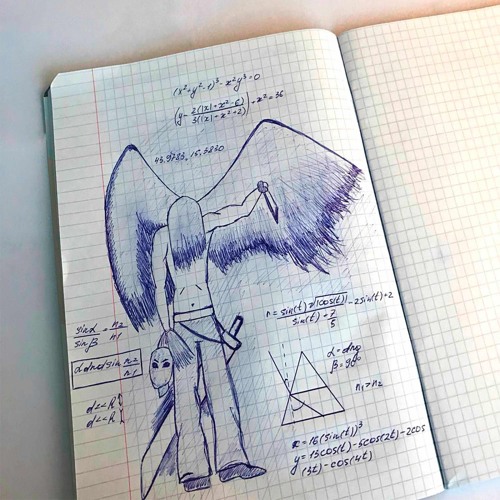 (x²+y²-1)³-x²y³=0
(y-2(|x|+x²-6)/3(|x|+x²+2))²+x²=36
43.9783, 15.3830
r=sin(t)√|cos(t)|/(sin(t)+7/5)-2sin(t)+2
sinα/sinβ=n2/n1
n2/n1
β=90°
n1>n2
x=16(sin(t))³
y=13cos(t)-5cos(2t)-2cos
(3t)-cos(4t)